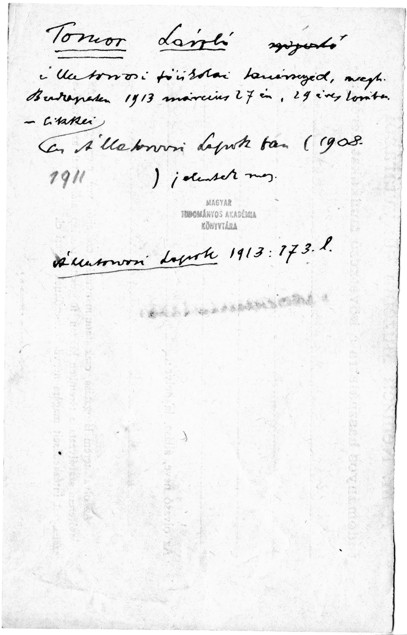 Tomor László
állatorvosi főiskolai tanársegéd, megh.
Budapesten 1913 március 27 én, 29 éves korába.
– Cikkei
az Állatorvosi Lapok ban (1908.
1911 ) jelentek meg.
MAGYAR
TUDOMÁNYOS AKADÉMIA
KÖNYVTÁRA
Állatorvosi Lapok 1913: 173. l.